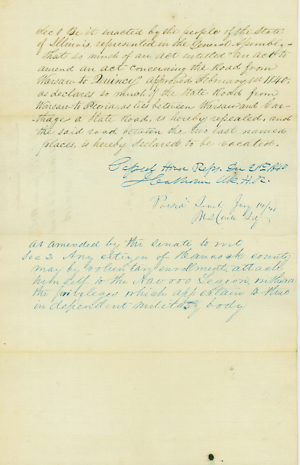 Sec 1 Be it enacted by the people of the State
of Illinois represented in the General Assembly
That so much of an act entitled "An Act to
amend an act concerning the Road from
Warsaw to Quincy" approved February 1st 1840.
as declares so much of the State Road from
Warsaw to Peoria, as lies between Warsaw and Car-
thage a State Road, is hereby repealed, and
the said road between the two last named
places, is hereby declared to be vacated.
Passed Hous Reps.
Calhoun Ck. H. R.
Passed Senat Jany
as amended by the Senate to wit
Sec 2 Any citizen of Hancock county
may by voluntary enrolment, attach
himself to the Nauvoo Legion, with all
the privileges which appertain to that
independent military body